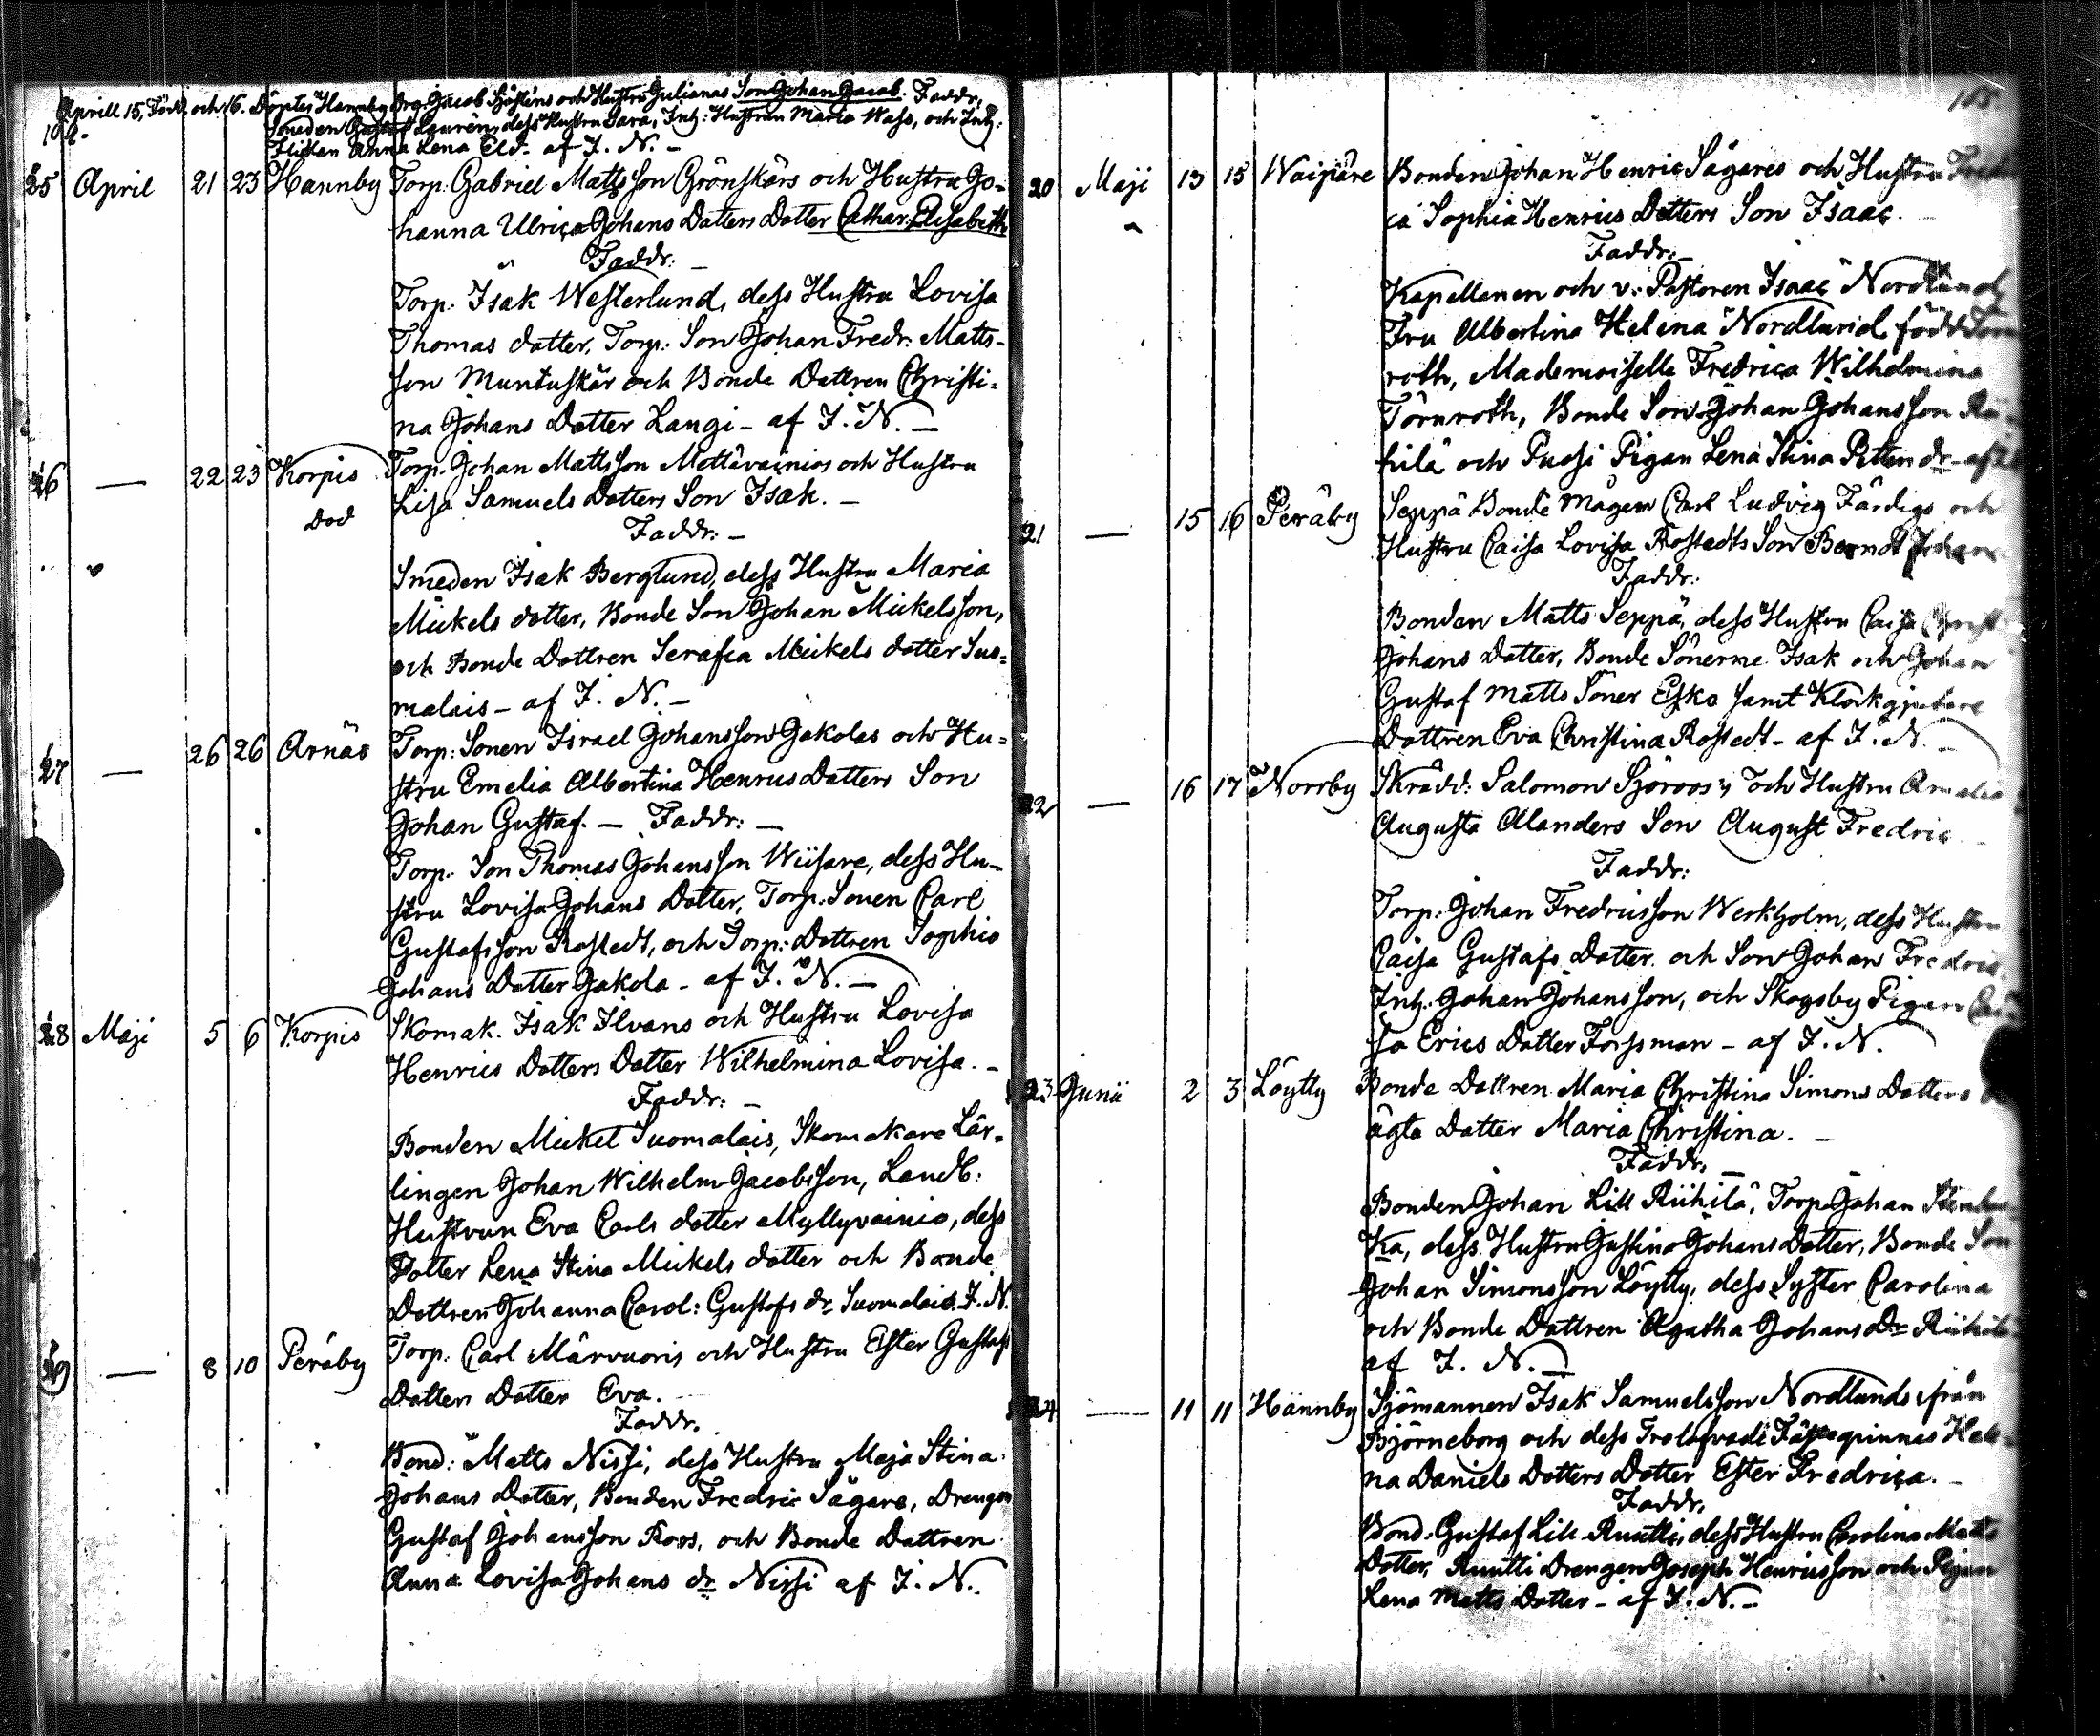 Aprill 15, Född, och 16. Döptes Hannby Drg. Jacob Sjösténs och Hustru Julianas Son Johan Jacob. Faddr,
104.
Smeden Gustaf Laurén, dess Hustru Sara, Inh: Hustrun Maria Wass, och Inh:
Flickan Anna Lena Eld. af I. N. -
25 April 21 23 Hannby Torp. Gabriel Matts son Grönskärs och Hustru Jo-
hanna Ulrica Johans Datters Dotter Cathar. Elisabeth
Faddr: -
Torp. Isak Westerlund, dess Hustru Lovisa
Thomas dotter, Torp. Son Johan Fredr. Matts-
son Muntuskär och Bonde Dottren Christi-
na Johans Dotter Langi - af I. N. -
26 — 22 23 Korpis Torp. Johan Mattsson Mottävainios och Hustru
död
Lisa Samuels Dotters Son Isak. -
Faddr: -
Smeden Isak Berglund, dess Hustru Maria
Mickels dotter, Bonde Son Johan Mickelsson,
och Bonde Dottren Serafia Mickels dotter Suo-
malais - af I. N. -
27 — 26 26 Arnäs Torp: Sonen Israel Johansson Jakolas och Hu-
stru Emelia Albertina Henrics Datters Son
Johan Gustaf. — Faddr: -
Torp. Son Thomas Johansson Wiisare, dess Hu-
stru Lovisa Johans Dotter, Torp. Sonen Carl
Gustafsson Rostedt, och Torp: Dottren Sophia
Johans Dotter Jakola - af I. N. -
28 Maji 5 6 Korpis Skomak. Isak Ilvans och Hustru Lovisa
Henrics Dotters Dotter Wilhelmina Lovisa. -
Faddr: -
Bonden Mickel Suomalais, Skomakare Lär-
lingen Johan Wilhelm Jacobsson, Landb:
Hustrun Eva Carls dotter Myllyvainio, dess
Dotter Lena Stina Mickels dotter och Bonde
Dottren Johanna Carol: Gustafs dr. Suomalais. I. N.
— 8 10 Peräby Torp. Carl Märvuoris och Hustru Ester Gustafs
Dotters Dotter Eva.
Faddr.
Bond: Matts Nissi, dess Hustru Maja Stina
Johans Dotter, Bonden Fredric Sägare, Drengen
Gustaf Johansson Roos, och Bonde Dottren
Anna Lovisa Johans dr Nissi af I. N.
105
20 Maji 13 15 Waipäre Bonden Johan Henric Sägares och Hustru
ca Sophia Henrics Dotters Son Isaac. -
Faddr: -
Kapellanen och v: Pastoren Isaac Nordlund
Fru Albertina Helena Nordlund, född Törn
roth, Mademoiselle Fredrica Wilhelmina
Törnroth, Bonde Son Johan Johansson
hilä och Pigan Lena Stina
21 — 15 16 Peräby Seppä Bonde Mågen Carl Ludvig Färdigs och
Hustru Caisa Lovisa Rostedts Son Berndt Johan
Faddr:
Bonden Matts Seppä, dess Hustru Caisa
Johans Dotter, Bonde Sönerne Isak och Johan
Gustaf Matts Söner Esko samt Klockgjutare
Dottren Eva Christina Rostedt - af I. N. -
22 — 16 17 Norrby Skrädd: Salomon Sjöroos och Hustru Amalia
Augusta Alanders Son August Fredric
Faddr:
Torp. Johan Fredricsson Werkholm, dess Hustru
Caisa Gustafs Dotter och Son Johan Fredric
Inh: Johan Johansson, och Skogsby Pigan
sa Erics Dotter Forssman - af I. N.
23 Junii 2 3 Löytty Bonde Dottren Maria Christina Simons Dotters
ägta Dotter Maria Christina. -
Faddr. -
Bonden Johan Lill Riihilä, Torp. Johan
ka, dess Hustru Justina Johans Dotter, Bonde Son
Johan Simonsson Löytty, dess Syster Carolina
och Bonde Dottren Agatha Johans Dr Riihilä
af I. N. -
24 — 11 11 Hannby Sjömannen Isak Samuelsson Nordlunds ifrån
Björneborg och dess Trolofvade Fästeqvinnas Hele-
na Daniels Dotters Dotter Ester Fredrica. -
Faddr,
Bond: Gustaf Lill Ruutti, dess Hustru Carolina Matts
Dotter, Ruutti Drengen Joseph Henricsson och Pigan
Lena Matts Dotter - af I. N. -